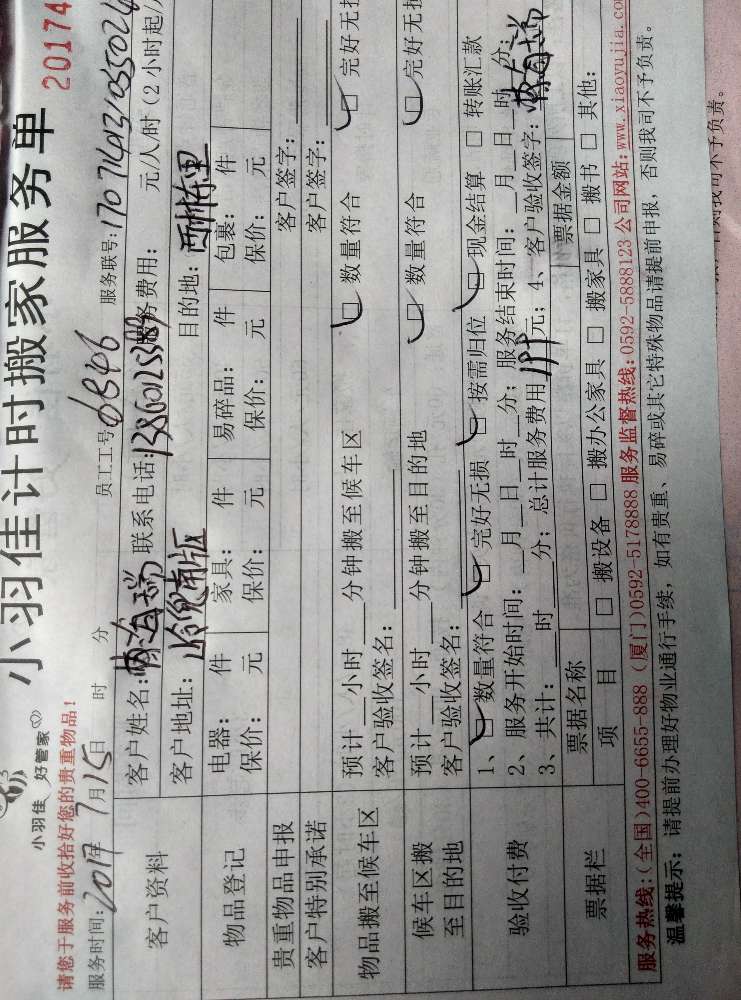 小羽佳计时搬家服务单
20174
小羽佳 好管家
请您于服务前收拾好您的贵重物品!
服务时间:2017年7月15日 时 分 员工工号:6846 服务联号:170714131055024
客户资料
客户姓名: 联系电话:13860125789 服务费用: 元/人/时(2小时起/
客户地址: 目的地:
物品登记
电器: 件 家具: 件 易碎品: 件 包裹: 件
保价: 元 保价: 元 保价: 元 保价: 元
贵重物品申报 客户签字:
客户特别承诺 客户签字:
物品搬至候车区
预计 小时 分钟搬至候车区 □ 数量符合 □ 完好无损
客户验收签名:
候车区搬至目的地
预计 小时 分钟搬至目的地 □ 数量符合 □ 完好无损
客户验收签名:
验收付费
1、□ 数量符合 □ 完好无损 □ 按需归位 □ 现金结算 □ 转账汇款
2、服务开始时间: 月 日 时 分; 服务结束时间: 月 日 时 分;
3、共计: 时 分; 总计服务费用 元; 4、客户验收签字:
票据栏
票据名称 票据金额
项目 □ 搬设备 □ 搬办公家具 □ 搬家具 □ 搬书 □ 其他:
服务热线:(全国)400-6655-888 (厦门)0592-5178888 服务监督热线:0592-5888123 公司网站:www.xiaoyujia.co
温馨提示: 请提前办理好物业通行手续, 如有贵重、易碎或其它特殊物品请提前申报, 否则我司不予负责。